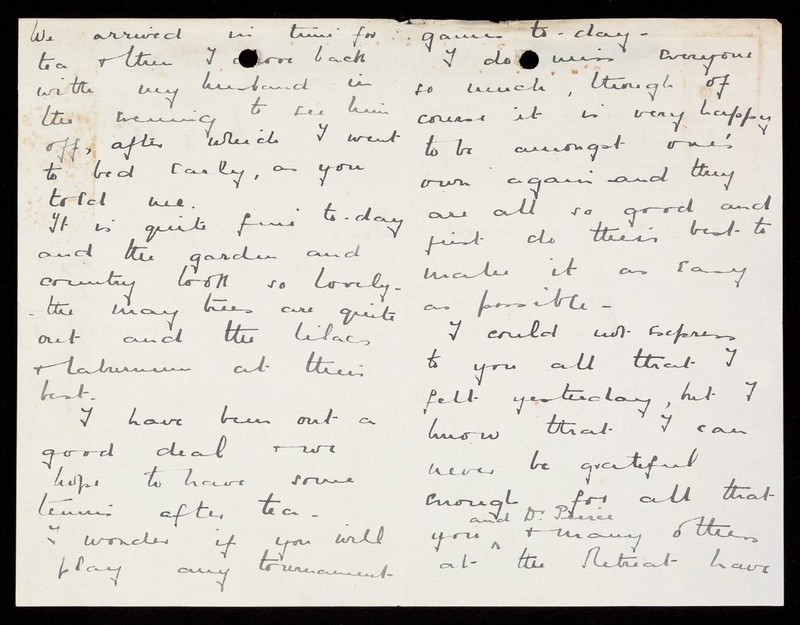 We arrived in time for
tea & then I drove back
with my husband in
the evening to see him
off, after which I went
to bed early, as you
told me.
It is quite fine to-day
and the garden and
country look so lovely-
the may trees are quite
out and the lilacs
& laburnum at their
best.
I have been out a
good deal & we
hope to have some
tennis after tea -
I wonder if you will
play any tournament
games to-day -
I do miss everyone
so much, though of
course it is very happy
to be amongst one's
own again and they
are all so good and
just do their best to
make it as easy
as possible -
I could not express
to you all that I
felt yesterday, but I
know that I can
never be grateful
enough for all that
you and Dr. Pierce & many others
at the Retreat have